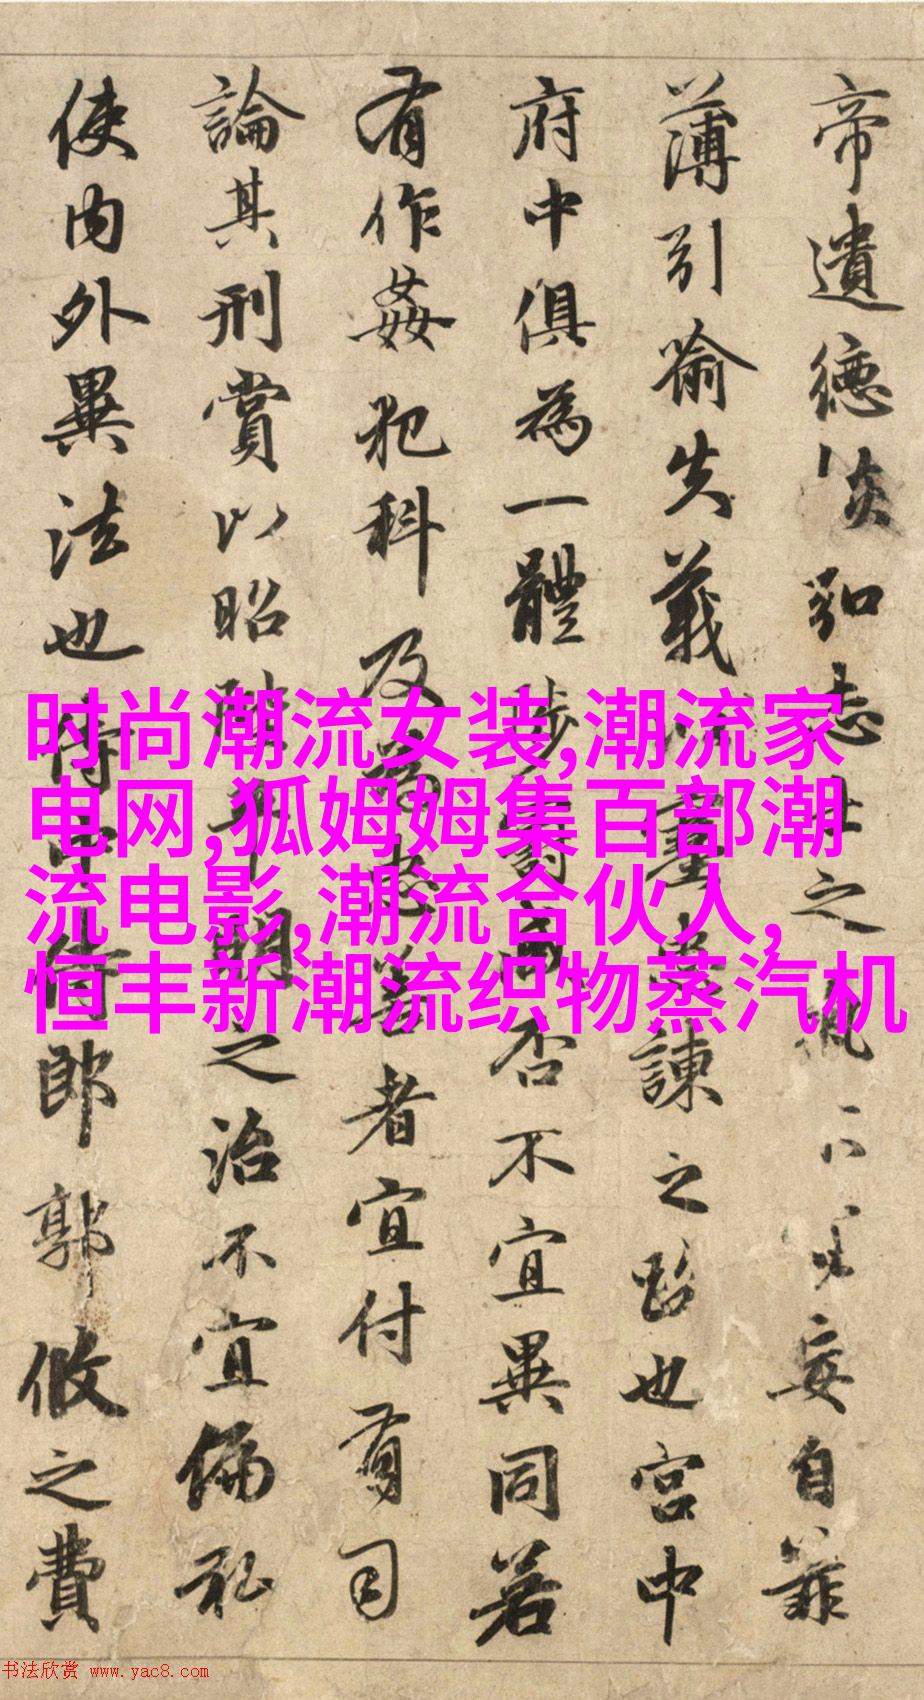 帝遺德恢弘志士之氣不宜妄自菲
薄引喻失義以塞忠諫之路也宮中
府中俱為一體陟罰臧否不宜異同若
有作姦犯科及為忠善者宜付有司
論其刑賞以昭陛平明之治不宜偏私
使內外異法也侍中侍郎郭攸之費
时尚潮流女装,潮流家
电网,狐姆姆集百部潮
流电影,潮流合伙人,
恒丰新潮流织物蒸汽机
书法欣赏 www.yac8.com